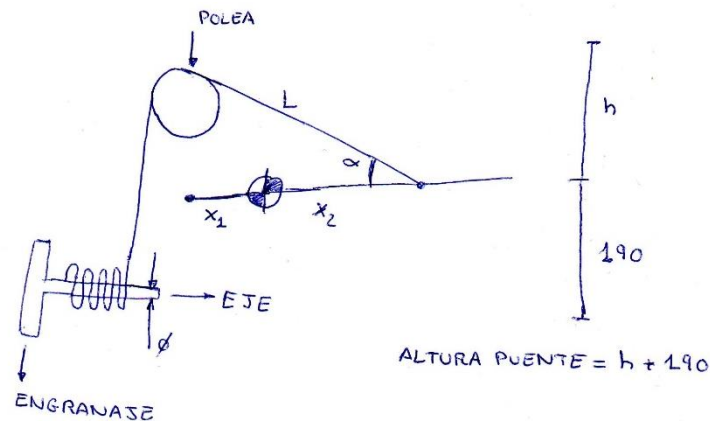 POLEA
L
h
α
x₁
x₂
190
EJE
ø
ALTURA PUENTE = h + 190
ENGRANAJE